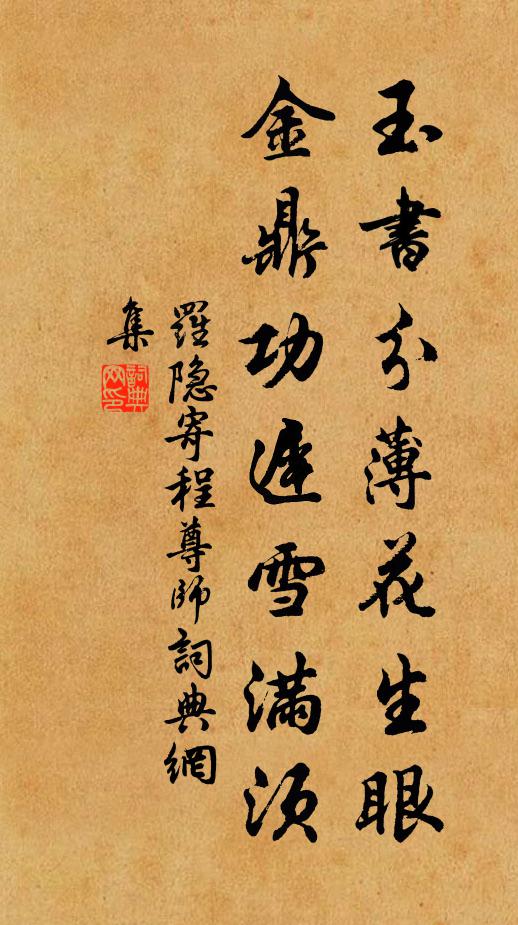 玉書分薄花生眼
金鼎功遲雪滿須
羅隐寄程尊師詞典網
集
詞典
网印